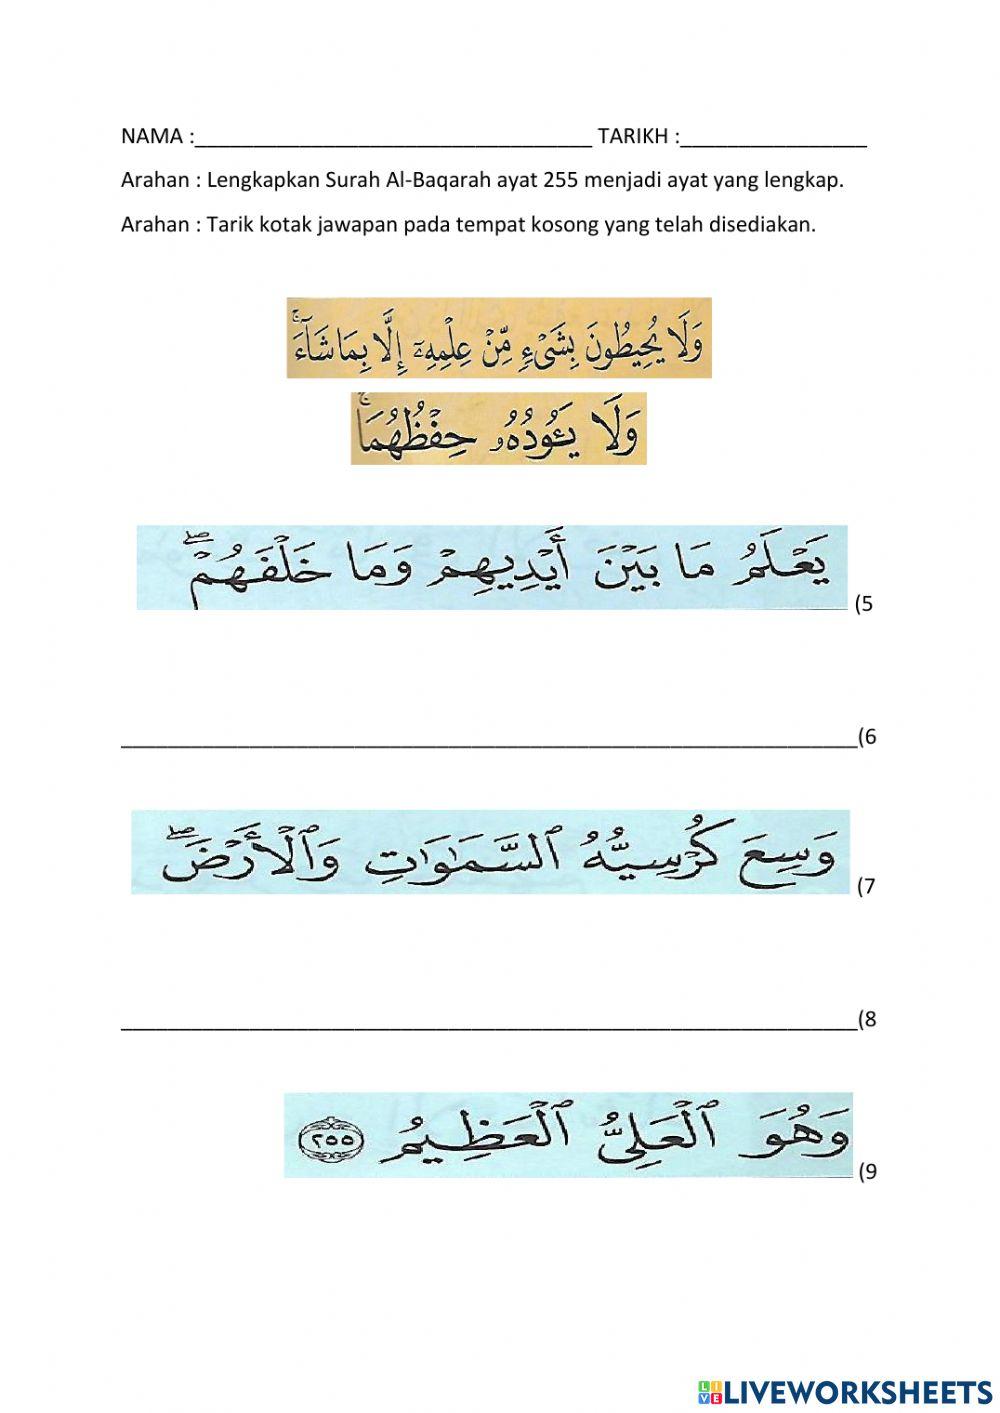 NAMA :__________________________________ TARIKH :________________
Arahan : Lengkapkan Surah Al-Baqarah ayat 255 menjadi ayat yang lengkap.
Arahan : Tarik kotak jawapan pada tempat kosong yang telah disediakan.
وَلَا يُحِيطُونَ بِشَىْءٍ مِّنْ عِلْمِهِۦٓ إِلَّا بِمَا شَآءَ ۚ
وَلَا يَـُٔودُهُۥ حِفْظُهُمَا ۚ
يَعْلَمُ مَا بَيْنَ أَيْدِيهِمْ وَمَا خَلْفَهُمْ ۖ (5
_______________________________________________________________(6
وَسِعَ كُرْسِيُّهُ ٱلسَّمَـٰوَٰتِ وَٱلْأَرْضَ ۖ (7
_______________________________________________________________(8
وَهُوَ ٱلْعَلِىُّ ٱلْعَظِيمُ ٢٥٥ (9
LIVE LIVEWORKSHEETS